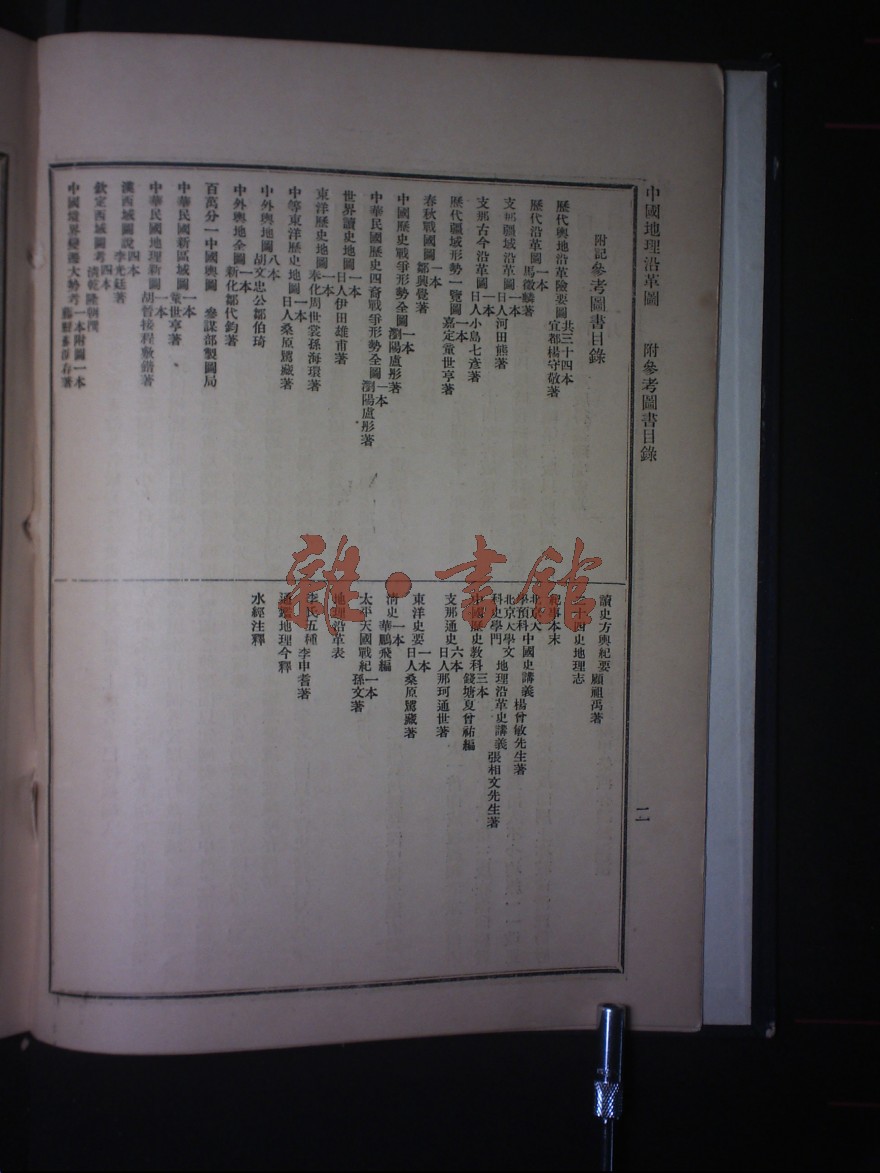 中國地理沿革圖　附參考圖書目錄
二
附記參考圖書目錄
歷代輿地沿革險要圖　共三十四本　宜都楊守敬著
歷代沿革圖　一本　馬徵麟著
支那疆域沿革圖　一本　日人河田熊著
支那古今沿革圖　一本　日人小島七彥著
歷代疆域形勢一覽圖　一本　嘉定童世亨著
春秋戰國圖　鄒興覺著
中國歷史戰爭形勢全圖　一本　瀏陽盧彤著
中華民國歷史四裔戰爭形勢全圖　一本　瀏陽盧彤著
世界讀史地圖　一本　日人伊田雄甫著
東洋歷史地圖　一本　奉化周世棠孫海環著
中等東洋歷史地圖　一本　日人桑原騭藏著
中外輿地圖　八本　胡文忠公鄒伯琦
中外輿地全圖　一本　新化鄒代鈞著
百萬分一中國輿圖　參謀部製圖局
中華民國新區域圖　一本　童世亨著
中華民國地理新圖　一本　胡晉接程敷鍇著
漢西域圖說　四本　李光廷著
欽定西域圖考　四本　清乾隆朝撰
中國境界變遷大勢考　一本附圖一本
讀史方輿紀要　顧祖禹著
二十四史地理志
紀事本末
北京大學預科　中國史講義　楊曾敏先生著
北京大學文科史學門　地理沿革史講義　張相文先生著
中國歷史教科　三本　錢塘夏曾祐編
支那通史　六本　日人那珂通世著
東洋史要　一本　日人桑原騭藏著
清史　一本　華鵬飛編
太平天國戰紀　一本　孫文著
地理沿革表
李氏五種　李申耆著
通鑑地理今釋
水經注釋
雜·書館